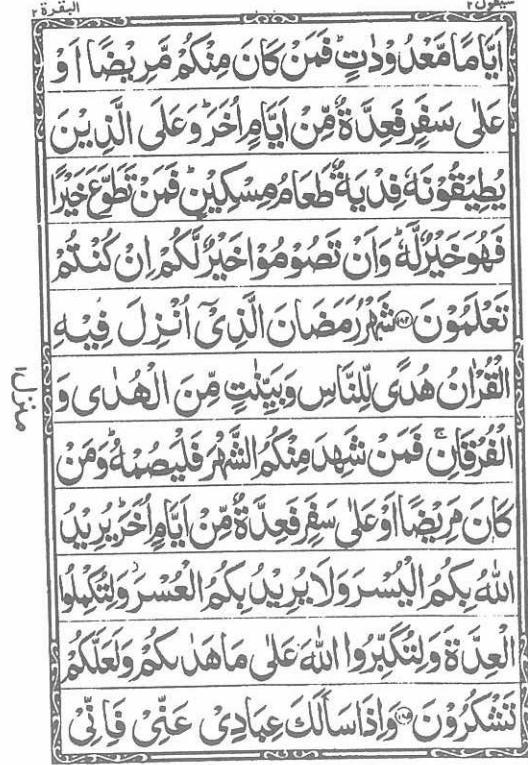 البقرة ٢
سيقول ٢
اَيَّامًا مَّعْدُوْدٰتٍ ؕ فَمَنْ كَانَ مِنْكُمْ مَّرِيْضًا اَوْ
عَلٰى سَفَرٍ فَعِدَّةٌ مِّنْ اَيَّامٍ اُخَرَ ؕ وَعَلَى الَّذِيْنَ
يُطِيْقُوْنَهٗ فِدْيَةٌ طَعَامُ مِسْكِيْنٍ ؕ فَمَنْ تَطَوَّعَ خَيْرًا
فَهُوَ خَيْرٌ لَّهٗ ؕ وَاَنْ تَصُوْمُوْا خَيْرٌ لَّكُمْ اِنْ كُنْتُمْ
تَعْلَمُوْنَ ﴿۱۸۴﴾ شَهْرُ رَمَضَانَ الَّذِيْٓ اُنْزِلَ فِيْهِ
الْقُرْاٰنُ هُدًى لِّلنَّاسِ وَبَيِّنٰتٍ مِّنَ الْهُدٰى وَ
الْفُرْقَانِ ۚ فَمَنْ شَهِدَ مِنْكُمُ الشَّهْرَ فَلْيَصُمْهُ ؕ وَمَنْ
كَانَ مَرِيْضًا اَوْ عَلٰى سَفَرٍ فَعِدَّةٌ مِّنْ اَيَّامٍ اُخَرَ ؕ يُرِيْدُ
اللّٰهُ بِكُمُ الْيُسْرَ وَلَا يُرِيْدُ بِكُمُ الْعُسْرَ ۫ وَلِتُكْمِلُوا
الْعِدَّةَ وَلِتُكَبِّرُوا اللّٰهَ عَلٰى مَا هَدٰىكُمْ وَلَعَلَّكُمْ
تَشْكُرُوْنَ ﴿۱۸۵﴾ وَاِذَا سَاَلَكَ عِبَادِيْ عَنِّيْ فَاِنِّيْ
منزل ١